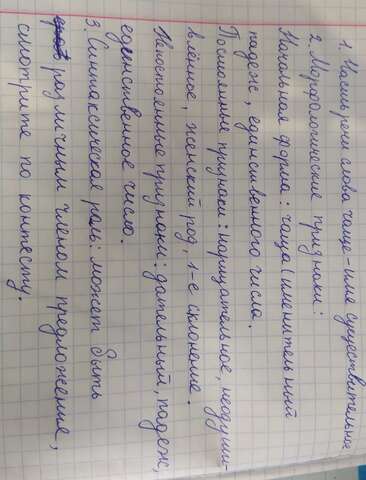 1. Часть речи слова чаще - имя существительное
2. Морфологические признаки:
Начальная форма: чаща (именительный
падеж, единственного числа.
Постоянные признаки: нарицательное, неодуши-
влённое, женский род, 1-е склонение.
Непостоянные признаки: дательный, падеж,
единственное число.
3. Синтаксическая роль: может быть
различным членом предложения,
смотрите по контесту.